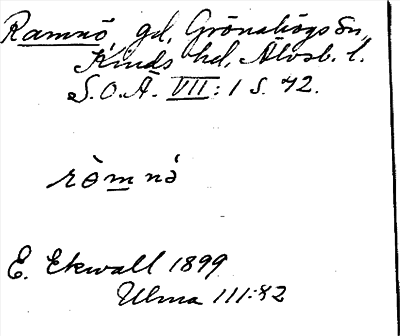 Ramnö, gd, Grönahögs sn,
Kinds hd, Älvsb. l.
S.O.Ä. VII: 1 s. 42.
ròmnó
E. Ekwall 1899
Ulma 111:82